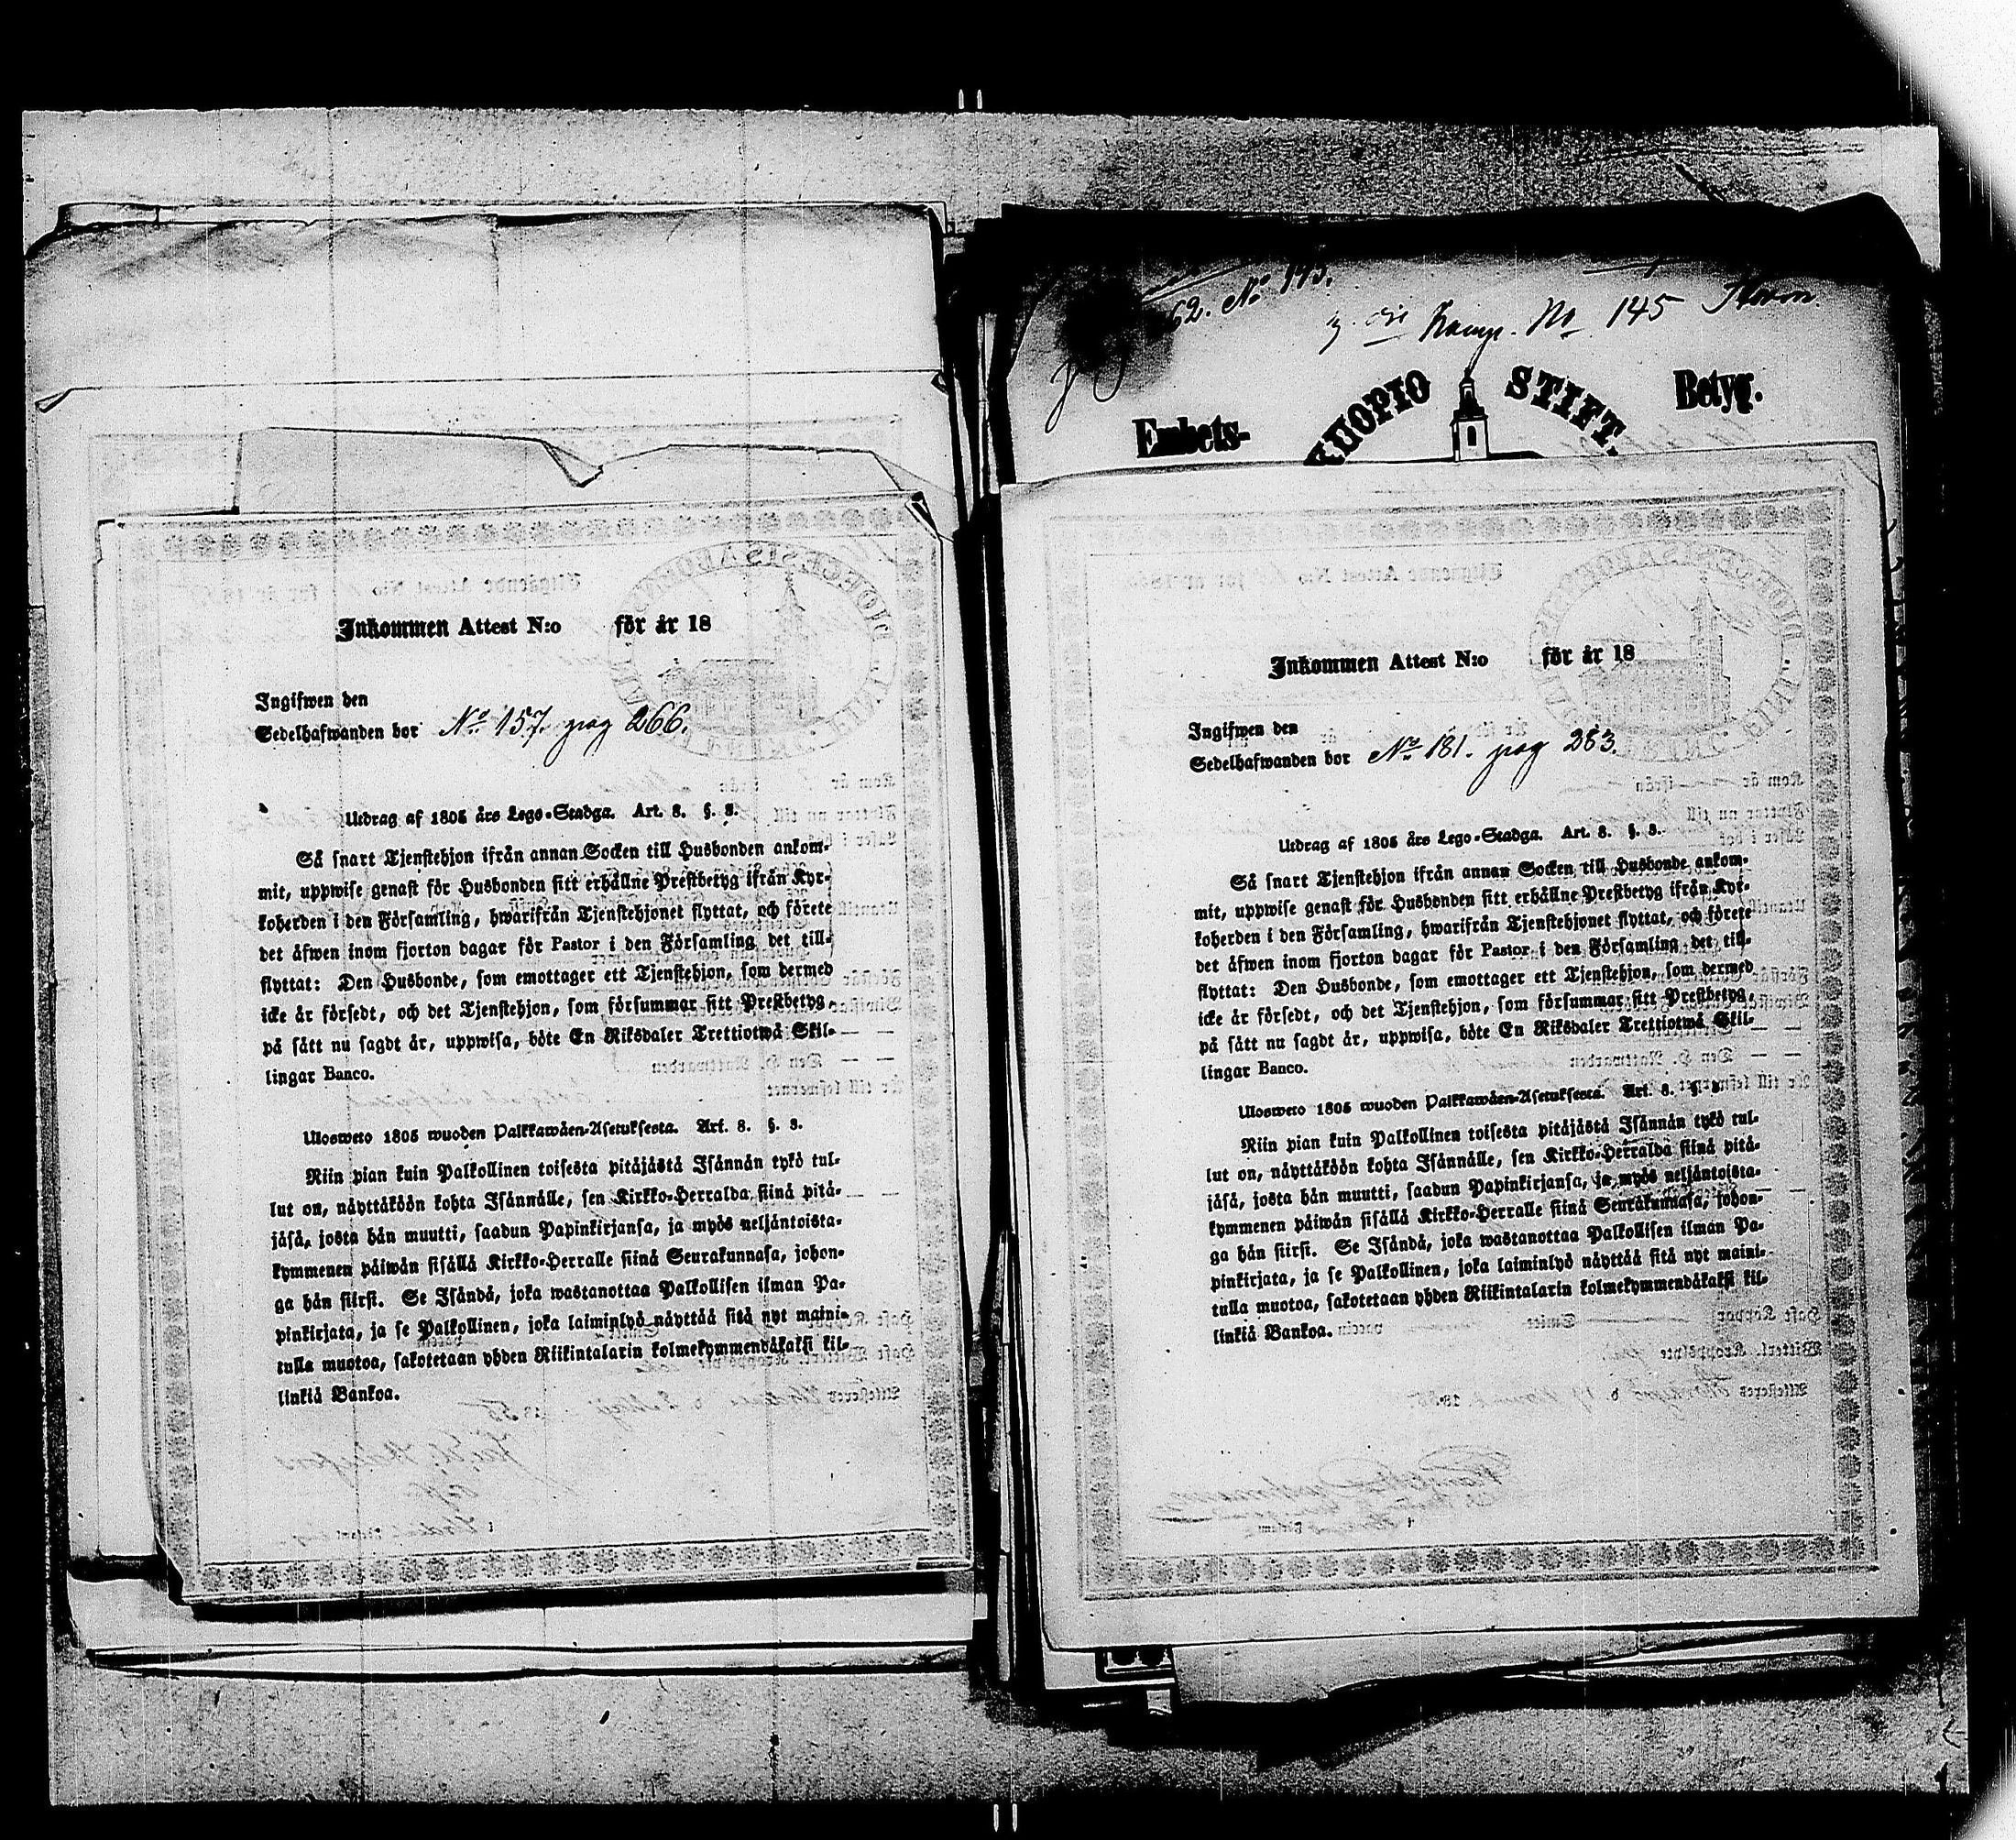 Inkommen Attest N:o för år 18
Ingifwen den
Sedelhafwanden bor No 157. pag 266.
Utdrag af 1805 års Lego-Stadga. Art. 8. §. 3.
Så snart Tjenstehjon ifrån annan Socken till Husbonden ankom-
mit, uppwise genast för Husbonden sitt erhållne Prestbetyg ifrån Kyr-
koherden i den Församling, hwarifrån Tjenstehjonet flyttat, och förete
det äfwen inom fjorton dagar för Pastor i den Församling det till-
flyttat: Den Husbonde, som emottager ett Tjenstehjon, som dermed
icke är försedt, och det Tjenstehjon, som försummar sitt Prestbetyg,
på sätt nu sagdt är, uppwisa, böte En Riksdaler Trettiotwå Skil-
lingar Banco.
Ulosweto 1805 wuoden Palkkawäen-Asetuksesta. Art. 8. §. 3.
Niin pian kuin Palkollinen toisesta pitäjästä Isännän tykö tul-
lut on, näyttäköön kohta Isännälle, sen Kirkko-Herralda siinä pitä-
jäsä, josta hän muutti, saadun Papinkirjansa, ja myös neljäntoista-
kymmenen päiwän sisällä Kirkko-Herralle siinä Seurakunnasa, johon-
ga hän siirsi. Se Isändä, joka wastanottaa Palkollisen ilman Pa-
pinkirjata, ja se Palkollinen, joka laiminlyö näyttää sitä nyt maini-
tulla muotoa, sakotetaan yhden Riikintalarin kolmekymmendäkaksi kil-
linkiä Bankoa.
62. No 145.
Komp. No 145
Embets- KUOPIO STIFT. Betyg.
Inkommen Attest N:o för år 18
Ingifwen den
Sedelhafwanden bor No 181. pag 283.
Utdrag af 1805 års Lego-Stadga. Art. 8. §. 3.
Så snart Tjenstehjon ifrån annan Socken till Husbonde ankom-
mit, uppwise genast för Husbonden sitt erhållne Prestbetyg ifrån Kyr-
koherden i den Församling, hwarifrån Tjenstehjonet flyttat, och förete
det äfwen inom fjorton dagar för Pastor i den Församling det till-
flyttat: Den Husbonde, som emottager ett Tjenstehjon, som dermed
icke är försedt, och det Tjenstehjon, som försummar sitt Prestbetyg,
på sätt nu sagdt är, uppwisa, böte En Riksdaler Trettiotwå Skil-
lingar Banco.
Ulosweto 1805 wuoden Palkkawäen-Asetuksesta. Art. 8. §. 3.
Niin pian kuin Palkollinen toisesta pitäjästä Isännän tykö tul-
lut on, näyttäköön kohta Isännälle, sen Kirkko-Herralda siinä pitä-
jäsä, josta hän muutti, saadun Papinkirjansa, ja myös neljäntoista-
kymmenen päiwän sisällä Kirkko-Herralle siinä Seurakunnasa, johon-
ga hän siirsi. Se Isändä, joka wastanottaa Palkollisen ilman Pa-
pinkirjata, ja se Palkollinen, joka laiminlyö näyttää sitä nyt maini-
tulla muotoa, sakotetaan yhden Riikintalarin kolmekymmendäkaksi kil-
linkiä Bankoa.